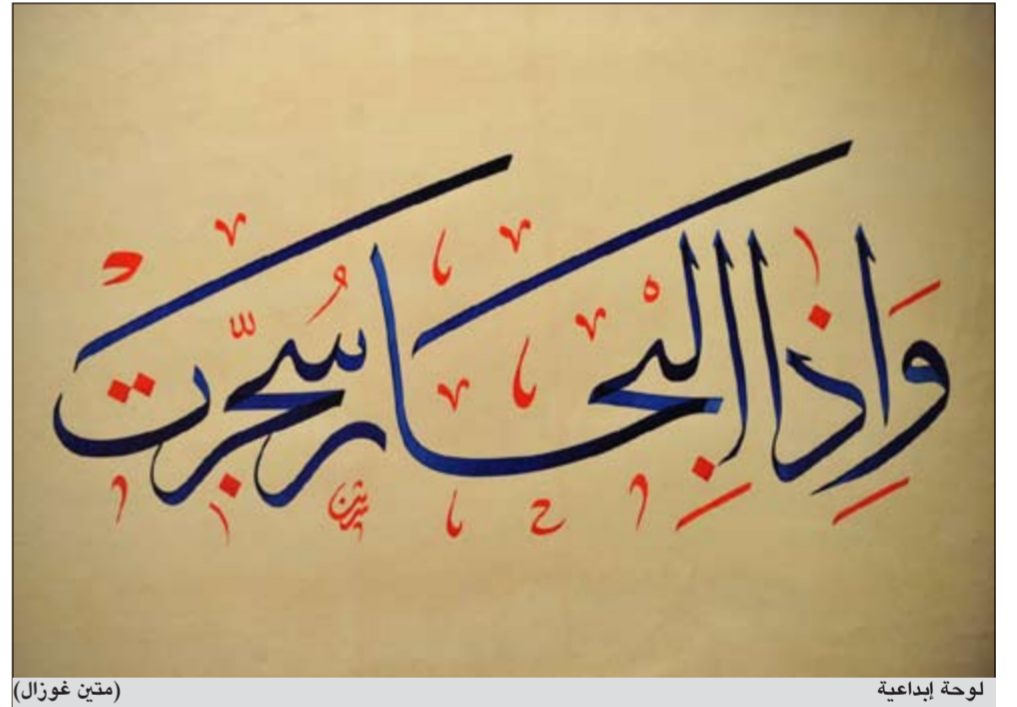 وَإِذَا الْبِحَارُ سُجِّرَتْ
لوحة إبداعية
(متين غوزال)